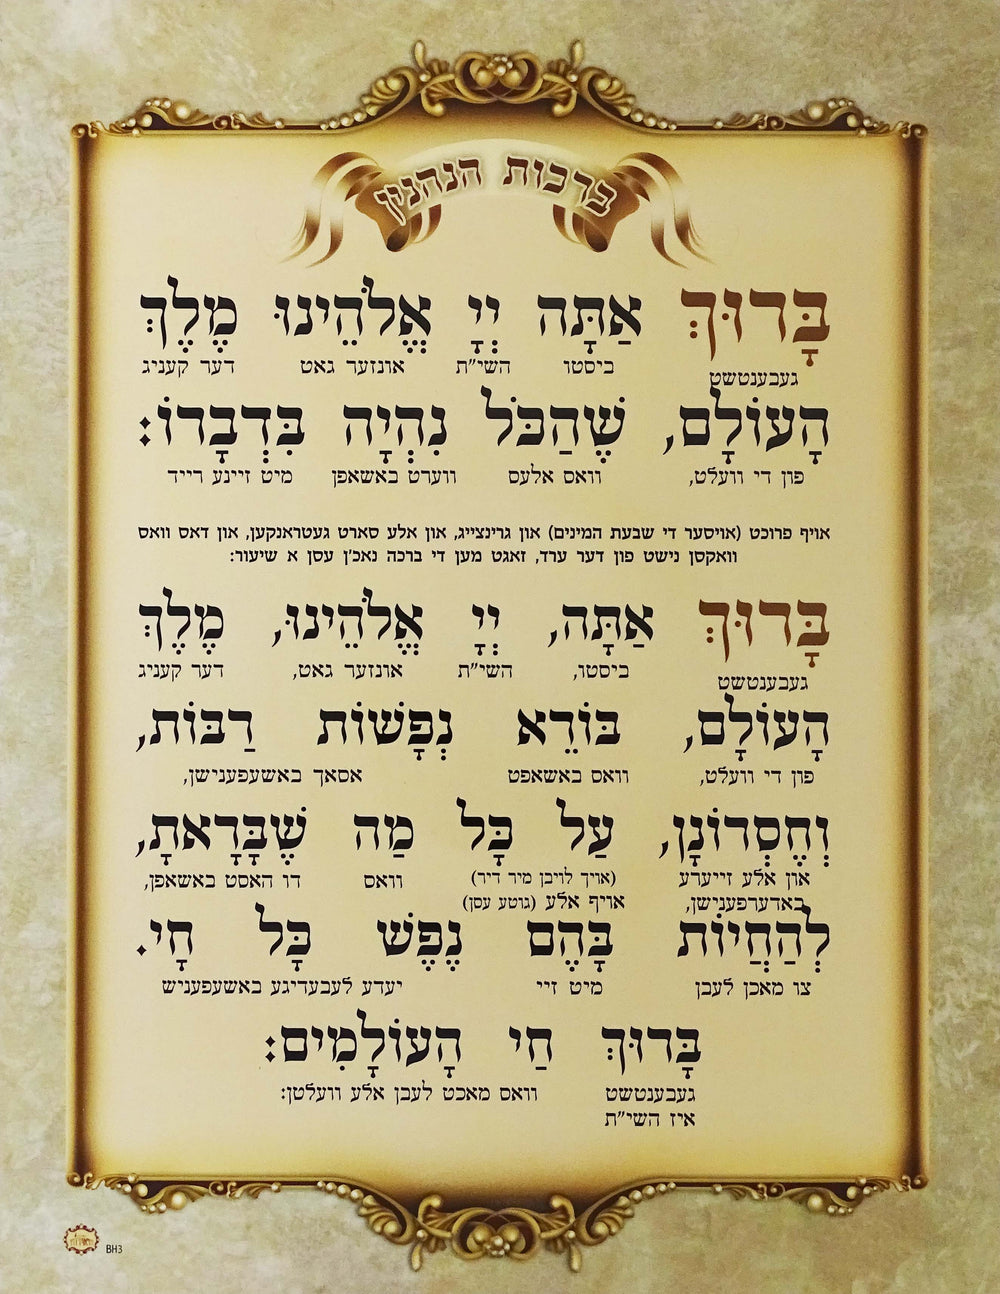 ברכות הנהנין
בָּרוּךְ אַתָּה יְיָ אֱלֹהֵינוּ מֶלֶךְ
געבענטשט ביסטו השי״ת אונזער גאט דער קעניג
הָעוֹלָם, שֶׁהַכֹּל נִהְיָה בִּדְבָרוֹ:
פון די וועלט, וואס אלעס ווערט באשאפן מיט זיינע רייד
אויף פרוכט (אויסער די שבעת המינים) און גרינצייג, און אלע סארט געטראנקען, און דאס וואס
וואקסן נישט פון דער ערד, זאגט מען די ברכה נאכ'ן עסן א שיעור:
בָּרוּךְ אַתָּה, יְיָ אֱלֹהֵינוּ, מֶלֶךְ
געבענטשט ביסטו, השי״ת אונזער גאט, דער קעניג
הָעוֹלָם, בּוֹרֵא נְפָשׁוֹת רַבּוֹת,
פון די וועלט, וואס באשאפט אסאך באשעפענישן,
וְחֶסְרוֹנָן, עַל כָּל מַה שֶּׁבָּרָאתָ,
און אלע זייערע (אויך לויבן מיר דיר) וואס דו האסט באשאפן,
באדערפענישן, אויף אלע (גוטע עסן)
לְהַחֲיוֹת בָּהֶם נֶפֶשׁ כָּל חָי.
צו מאכן לעבן מיט זיי יעדע לעבעדיגע באשעפעניש
בָּרוּךְ חַי הָעוֹלָמִים:
געבענטשט וואס מאכט לעבן אלע וועלטן:
איז השי״ת
BH3